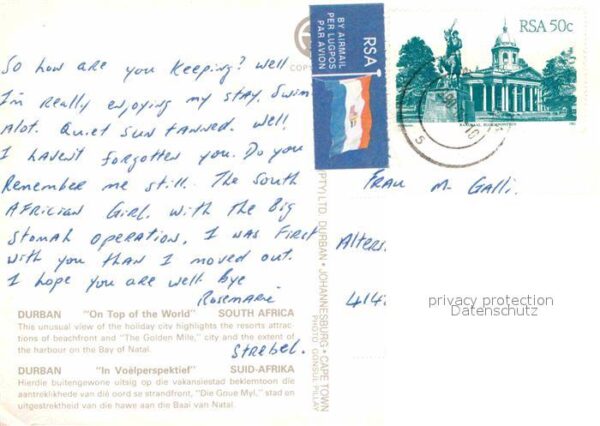 So how are you keeping? Well
I'm really enjoying my stay. Swim
alot. Quiet sun tanned. Well.
I havent forgotten you. Do you
Remember me still. The South
African Girl. With the Big
Stomah operation. I was First
with you than I moved out.
I hope you are well. bye
Rosemarie
Strebel.
DURBAN "On Top of the World" SOUTH AFRICA
This unusual view of the holiday city highlights the resorts attrac-
tions of beachfront and "The Golden Mile," city and the extent of
the harbour on the Bay of Natal.
DURBAN "In Voëlperspektief" SUID-AFRIKA
Hierdie buitengewone uitsig op die vakansiestad beklemtoon die
aantreklikhede van dié oord se strandfront, "Die Goue Myl," stad en
uitgestrektheid van die hawe aan die Baai van Natal.
COP
(PTY) LTD. DURBAN • JOHANNESBURG • CAPE TOWN
PHOTO: GONSUL PILLAY
BY AIRMAIL
PER LUGPOS
PAR AVION
RSA
RSA 50c
Frau M. Galli.
Alters
414
privacy protection
Datenschutz